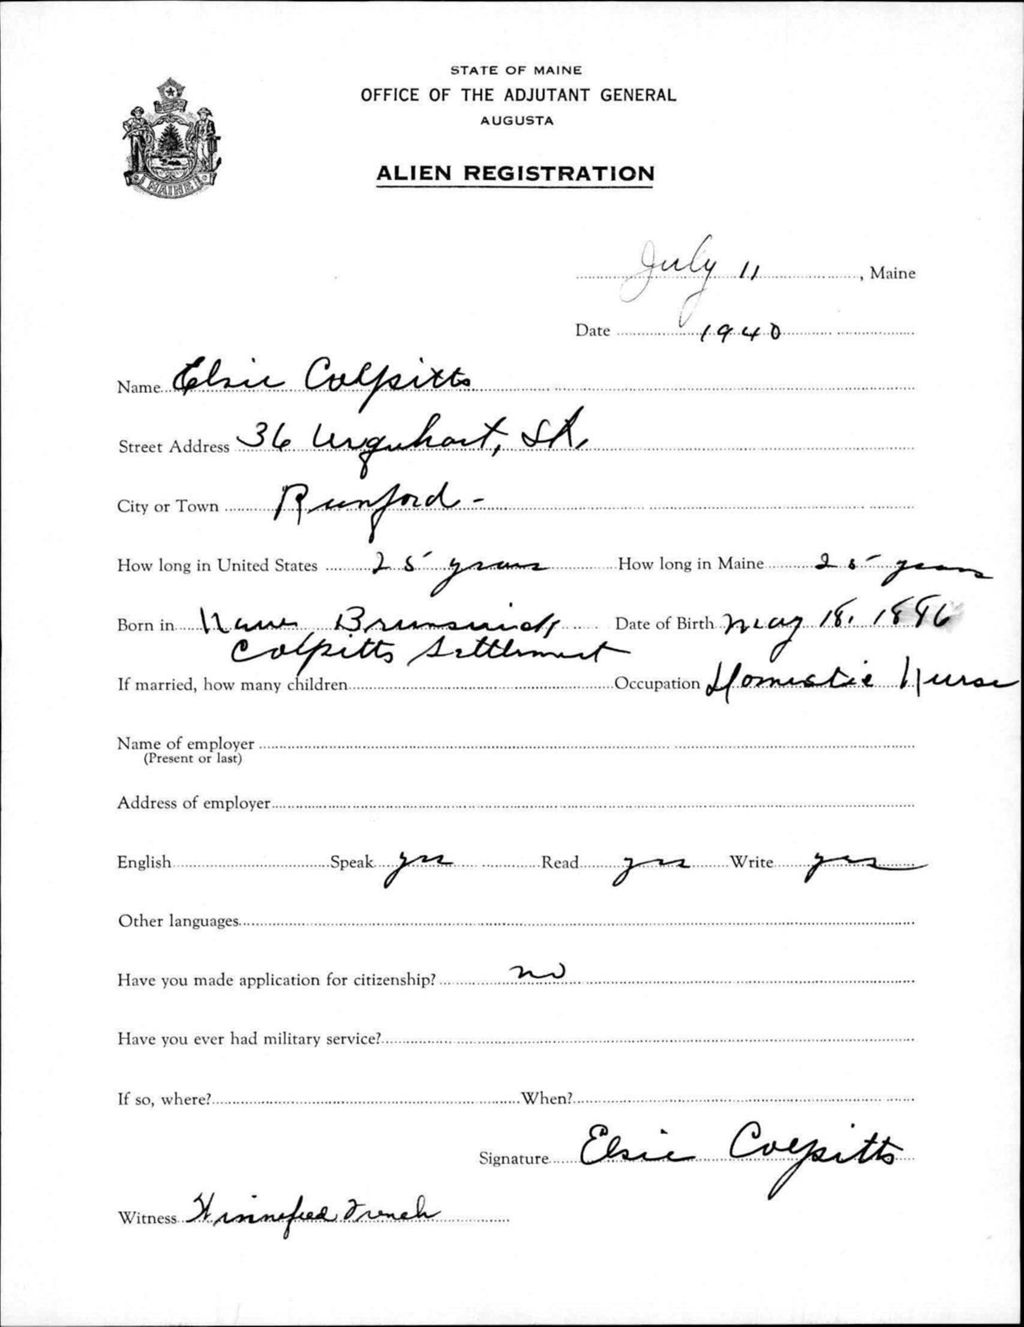 STATE OF MAINE
OFFICE OF THE ADJUTANT GENERAL
AUGUSTA
ALIEN REGISTRATION
MAINE
July 11, Maine
Date 1940
Name Elsie Colpitts
Street Address 36 Urquhart, St,
City or Town Rumford -
How long in United States 25 years How long in Maine 25 years
Born in New Brunswick Date of Birth May 18, 1886
Colpitts Settlement
If married, how many children Occupation Domestic Nurse
Name of employer
(Present or last)
Address of employer
English Speak yes Read yes Write yes
Other languages
Have you made application for citizenship? no
Have you ever had military service?
If so, where? When?
Signature Elsie Colpitts
Witness Winnefred French